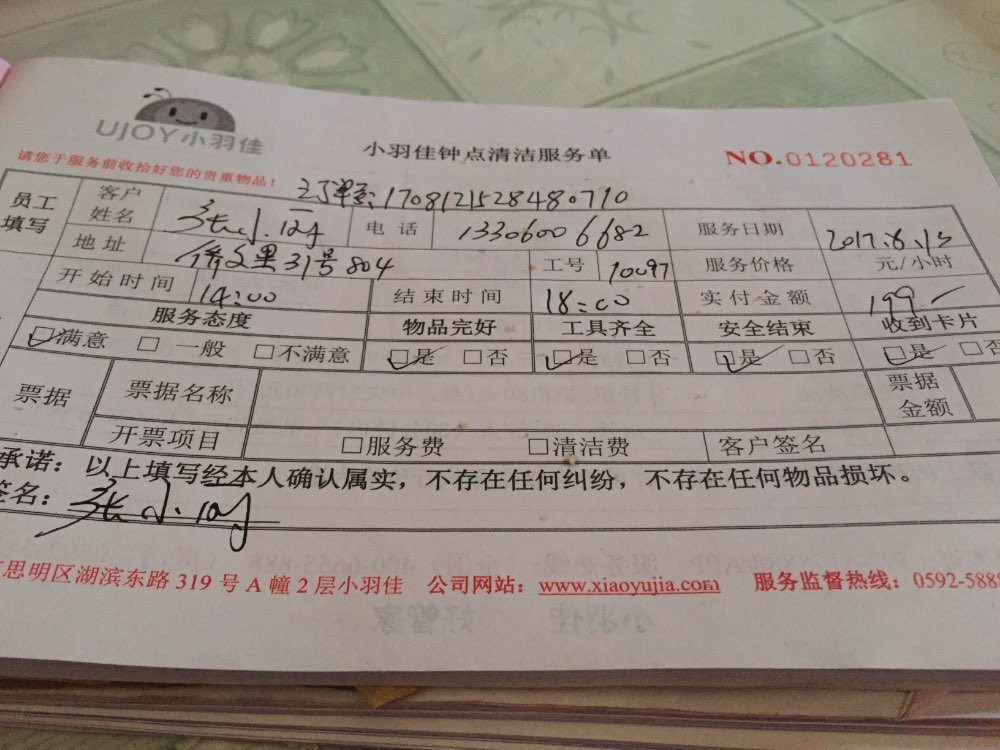 UJOY小羽佳
小羽佳钟点清洁服务单
NO.0120281
请您于服务前收拾好您的贵重物品！
订单号:1708121528480710
员工填写 客户姓名 张小 电话 13306006682 服务日期 2017.8.13
地址 侨文里31号804 工号 10097 服务价格 元/小时
开始时间 14:00 结束时间 18:00 实付金额 199
服务态度 物品完好 工具齐全 安全结束 收到卡片
满意 一般 不满意 是 否 是 否 是 否 是 否
票据 票据名称 票据金额
开票项目 服务费 清洁费 客户签名
承诺：以上填写经本人确认属实，不存在任何纠纷，不存在任何物品损坏。
签名：张小
思明区湖滨东路 319 号 A 幢 2 层小羽佳 公司网站：www.xiaoyujia.com 服务监督热线：0592-5888